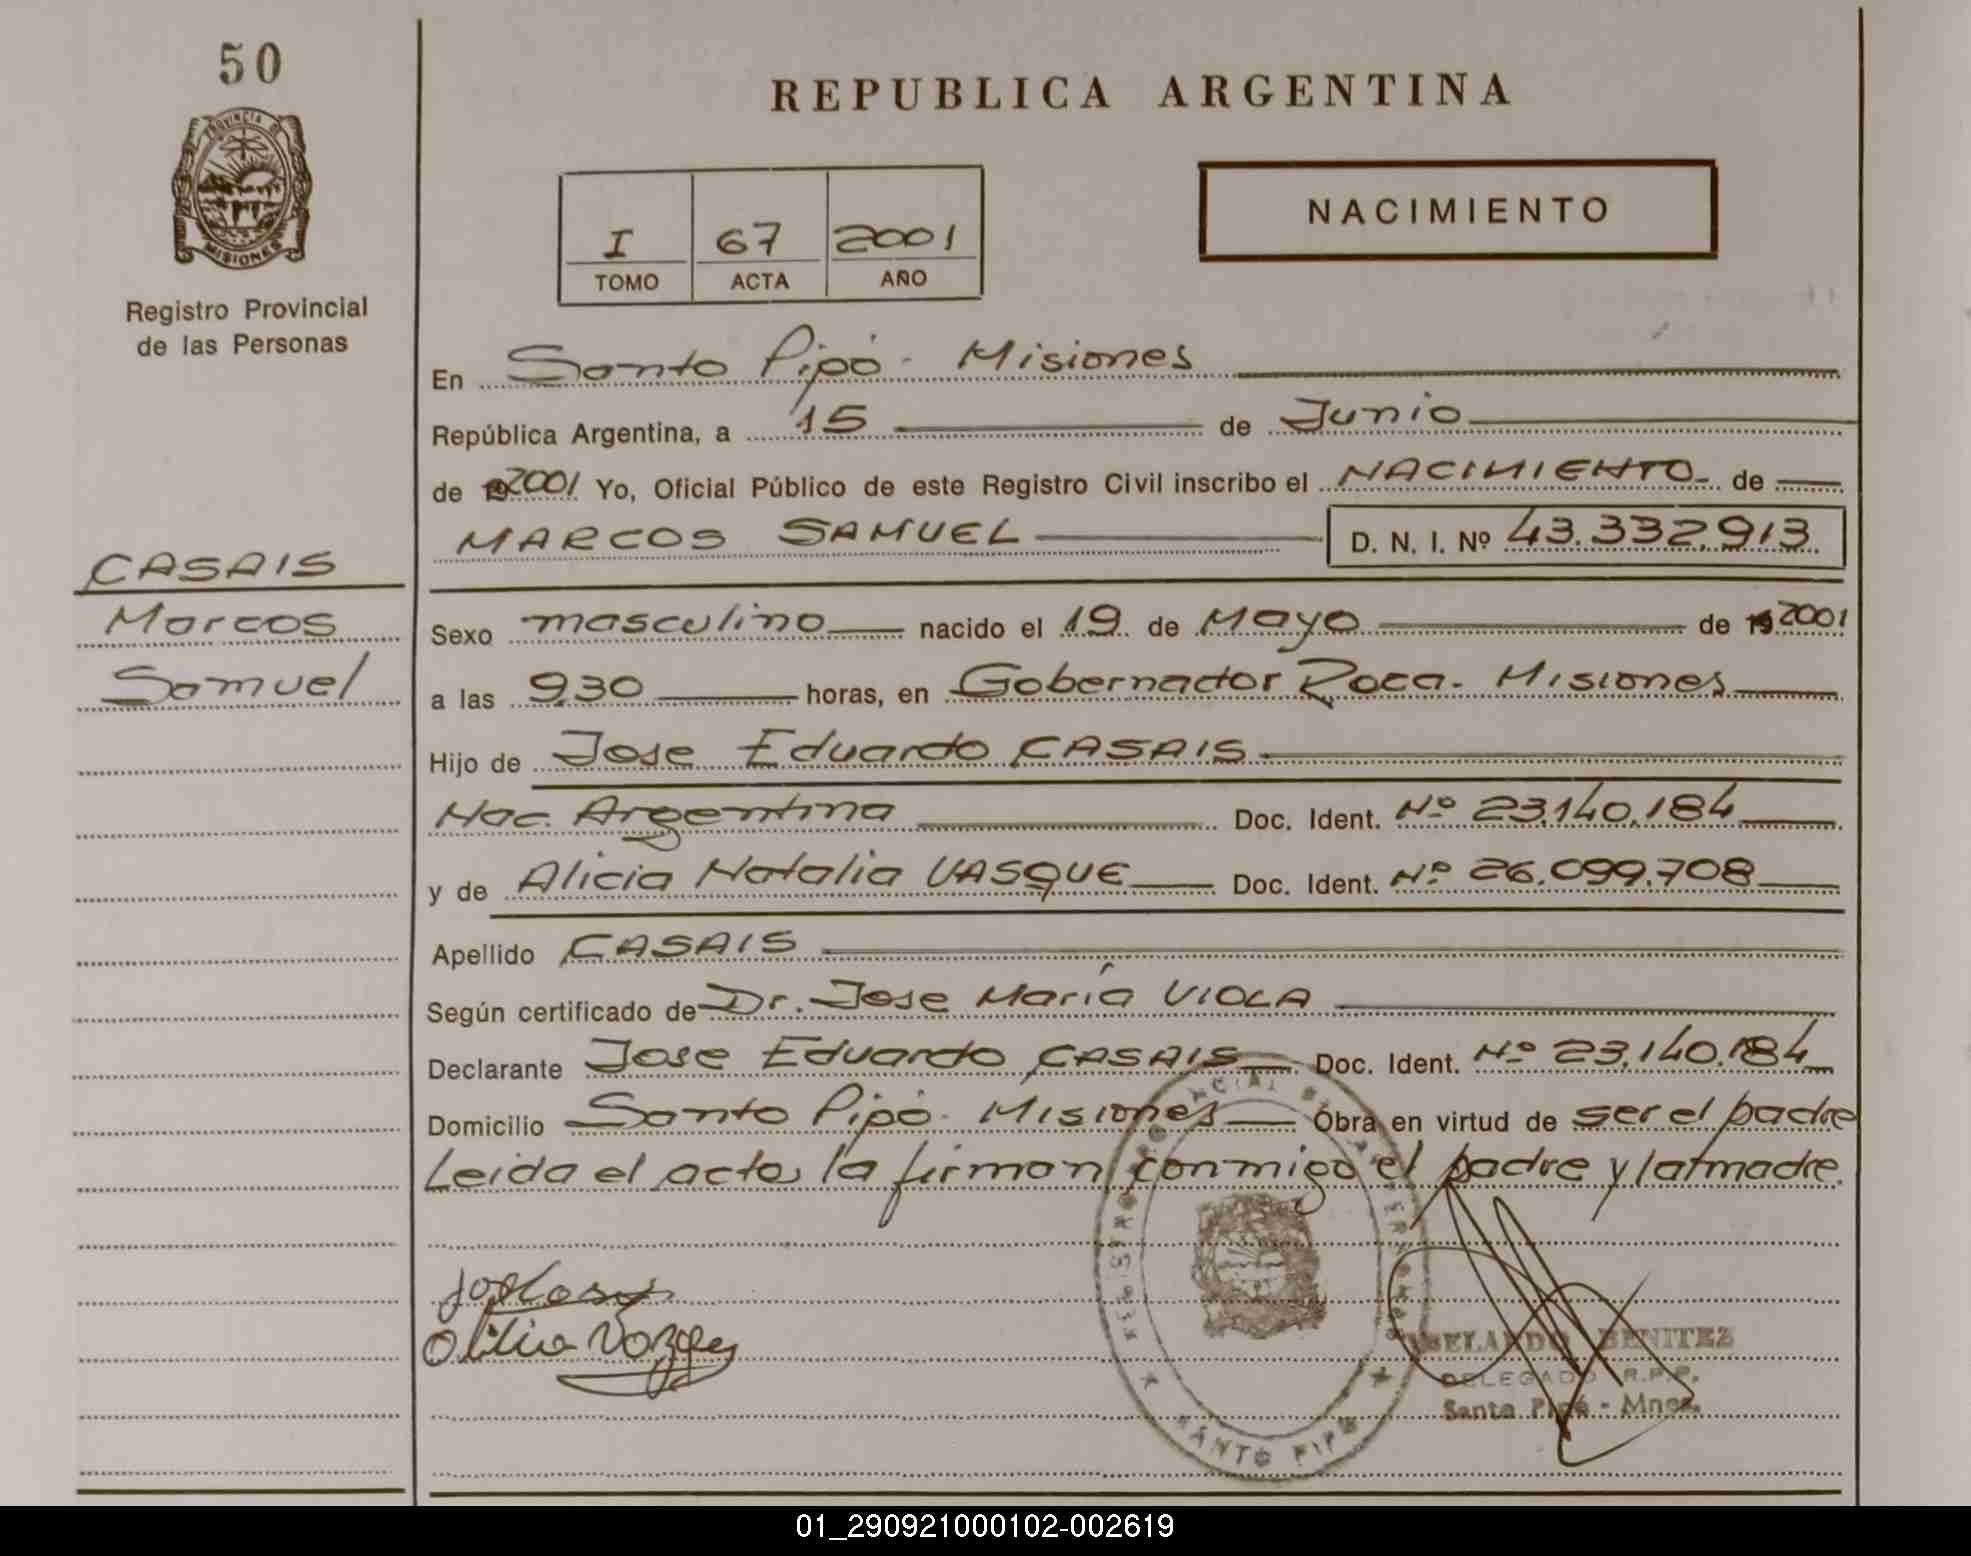 50
REPUBLICA ARGENTINA
PROVINCIA DE
MISIONES
NACIMIENTO
I 67 2001
TOMO ACTA AÑO
Registro Provincial
de las Personas
En Santo Pipó - Misiones
República Argentina, a 15 de Junio
de 2001 Yo, Oficial Público de este Registro Civil inscribo el NACIMIENTO de
MARCOS SAMUEL D. N. I. Nº 43.332.913
CASAIS
Marcos
Samuel
Sexo masculino nacido el 19 de Mayo de 19 2001
a las 9,30 horas, en Gobernador Roca - Misiones
Hijo de Jose Eduardo CASAIS
Nac. Argentina Doc. Ident. Nº 23.140.184
y de Alicia Natalia VASQUE Doc. Ident. Nº 26.099.708
Apellido CASAIS
Según certificado de Dr. Jose María VIOLA
Declarante Jose Eduardo CASAIS Doc. Ident. Nº 23.140.184
Domicilio Santo Pipó - Misiones Obra en virtud de ser el padre
Leida el acta, la firman conmigo el padre y la madre.
BENITEZ
DELEGADO R.P.P.
Santo Pipó - Mnes.
SANTO PIPO
01_290921000102-002619